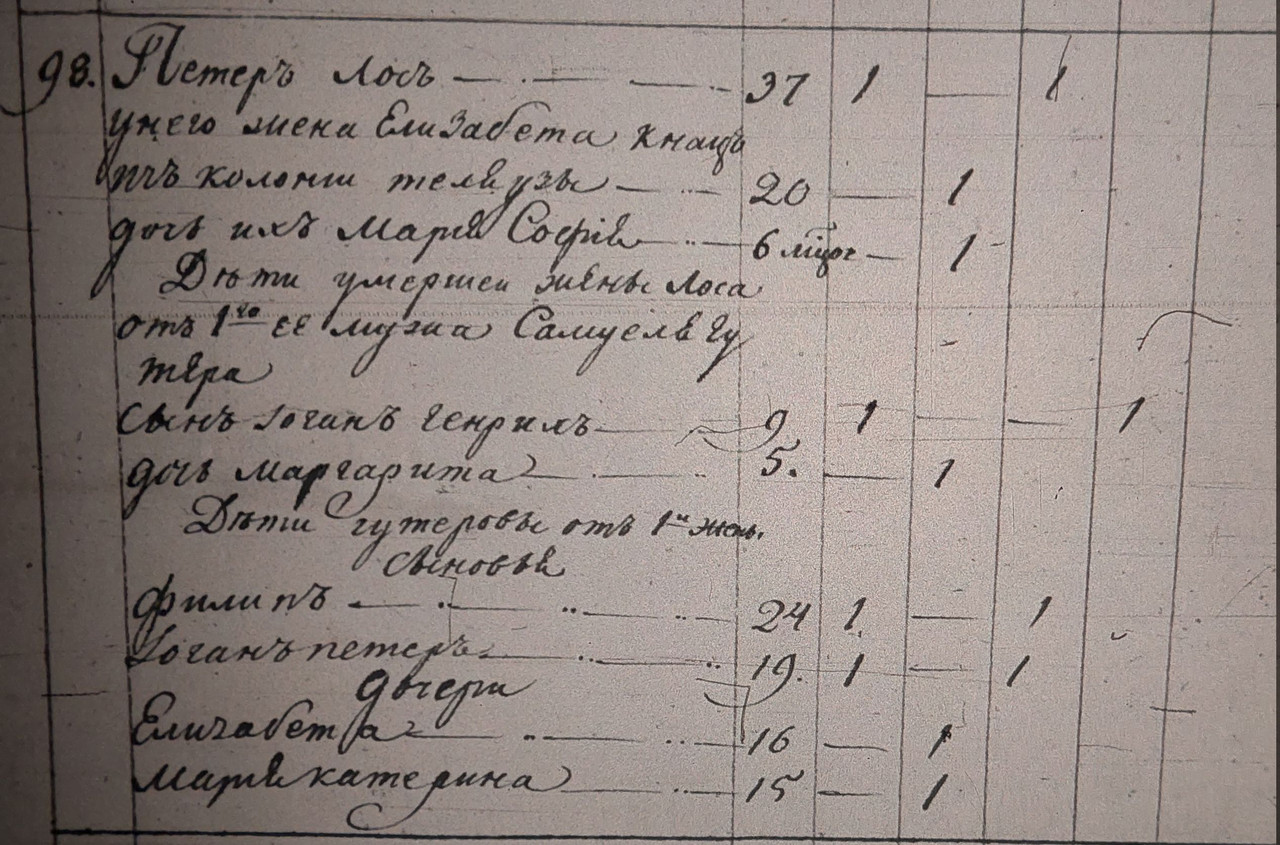 98. Петеръ Лосъ — · — — ·· 37 1 — 1
унего жена Елизабета Кнацъ
изъ колонии телвузы — ·· — 20 — 1
дочь ихъ Марiя Софiя — ·· — 6 мцог — 1
Дѣти умершей жены Лоса
отъ 1го ее мужа Самуеля Гу
тера
сынъ Iоганъ Генрихъ — 9 1 — — 1
дочь Маргарита — · — ·· 5. — 1
Дѣти гутеровы отъ 1й жен.
сыновья
Филипъ — · — ·· — ·· — 24 1 — 1
Iоганъ петеръ — ·· — ·· 19. 1 — 1
дочери
Елизабета — ·· — ·· — 16 — 1
Марiя катерина — ·· — 15 — 1